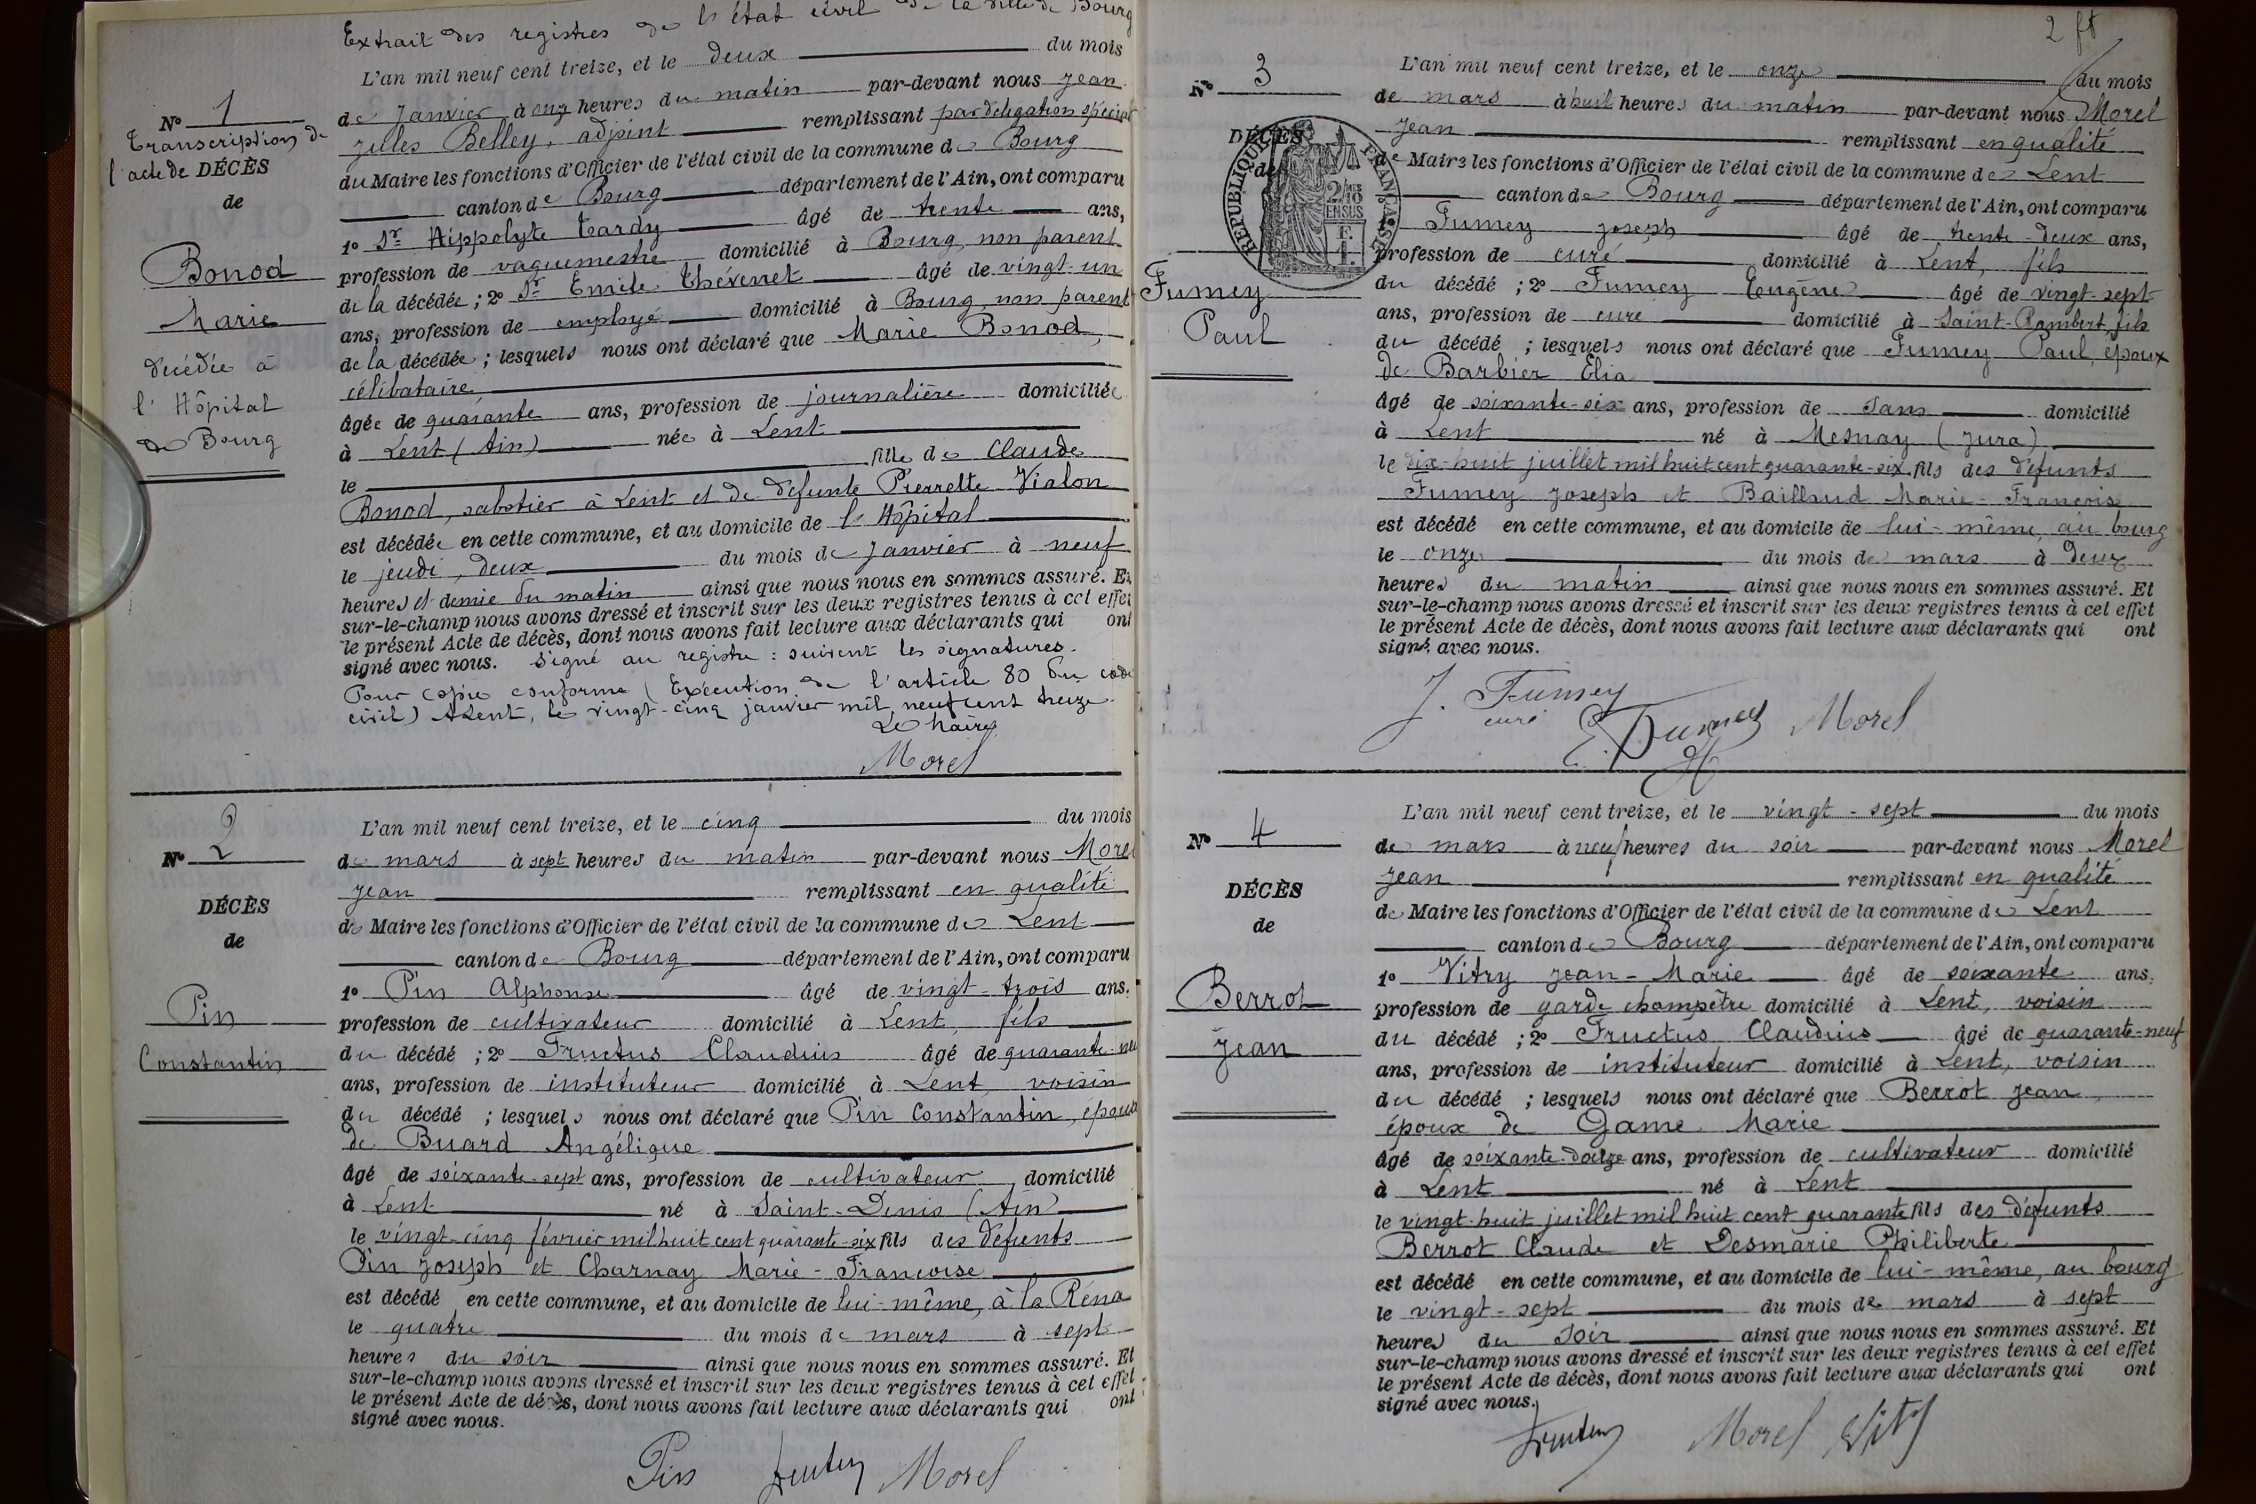 Extrait des registres de l'état civil de la ville de Bourg
L'an mil neuf cent treize, et le deux du mois
de Janvier à onze heures du matin par-devant nous Jean
Gilles Belley, adjoint remplissant par délégation spéciale
du Maire les fonctions d'Officier de l'état civil de la commune de Bourg
canton de Bourg département de l'Ain, ont comparu
1º Sr Hippolyte Tardy âgé de trente ans,
profession de vaguemestre domicilié à Bourg, non parent
de la décédée ; 2º Sr Emile Thévenet âgé de vingt-un
ans, profession de employé domicilié à Bourg, non parent
de la décédée ; lesquels nous ont déclaré que Marie Bonod,
célibataire
âgée de quarante ans, profession de journalière domiciliée
à Lent (Ain) née à Lent
le fille de Claude
Bonod, sabotier à Lent et de défunte Pierrette Vialon
est décédée en cette commune, et au domicile de l'Hôpital
le jeudi, deux du mois de Janvier à neuf
heures et demie du matin ainsi que nous nous en sommes assuré. Et
sur-le-champ nous avons dressé et inscrit sur les deux registres tenus à cet effet
le présent Acte de décès, dont nous avons fait lecture aux déclarants qui ont
signé avec nous. Signé au registre : suivent les signatures.
Pour copie conforme (Exécution de l'article 80 du code
civil) A Lent, le vingt-cinq janvier mil neuf cent treize.
Le Maire,
Morel
Nº 1
Transcription de
l'acte de DÉCÈS
de
Bonod
Marie
décédée à
l'Hôpital
de Bourg
Nº 2
DÉCÈS
de
Pin
Constantin
L'an mil neuf cent treize, et le cinq du mois
de mars à sept heures du matin par-devant nous Morel
Jean remplissant en qualité
de Maire les fonctions d'Officier de l'état civil de la commune de Lent
canton de Bourg département de l'Ain, ont comparu
1º Pin Alphonse âgé de vingt-trois ans,
profession de cultivateur domicilié à Lent, fils
du décédé ; 2º Fructus Claudius âgé de quarante-neuf
ans, profession de instituteur domicilié à Lent, voisin
du décédé ; lesquels nous ont déclaré que Pin Constantin, époux
de Buard Angélique
âgé de soixante-sept ans, profession de cultivateur, domicilié
à Lent né à Saint-Denis (Ain)
le vingt-cinq février mil huit cent quarante-six fils des défunts
Pin Joseph et Charnay Marie-Françoise
est décédé en cette commune, et au domicile de lui-même, à la Réna
le quatre du mois de mars à sept
heures du soir ainsi que nous nous en sommes assuré. Et
sur-le-champ nous avons dressé et inscrit sur les deux registres tenus à cet effet
le présent Acte de décès, dont nous avons fait lecture aux déclarants qui ont
signé avec nous.
Pin Fructus Morel
2 ft
Nº 3
DÉCÈS
de
RÉPUBLIQUE FRANÇAISE
2/10
EN SUS
Fumey
Paul
L'an mil neuf cent treize, et le onze du mois
de mars à huit heures du matin par-devant nous Morel
Jean remplissant en qualité
de Maire les fonctions d'Officier de l'état civil de la commune de Lent
canton de Bourg département de l'Ain, ont comparu
1º Fumey Joseph âgé de trente-deux ans,
profession de curé domicilié à Lent, fils
du décédé ; 2º Fumey Eugène âgé de vingt-sept
ans, profession de curé domicilié à Saint-Rambert, fils
du décédé ; lesquels nous ont déclaré que Fumey Paul, époux
de Barbier Elia
âgé de soixante-six ans, profession de sans domicilié
à Lent né à Mesnay (Jura)
le dix-huit juillet mil huit cent quarante-six fils des défunts
Fumey Joseph et Bailland Marie-Françoise
est décédé en cette commune, et au domicile de lui-même, au bourg
le onze du mois de mars à deux
heures du matin ainsi que nous nous en sommes assuré. Et
sur-le-champ nous avons dressé et inscrit sur les deux registres tenus à cet effet
le présent Acte de décès, dont nous avons fait lecture aux déclarants qui ont
signé avec nous.
J. Fumey
curé
E. Fumey Morel
Nº 4
DÉCÈS
de
Berrot
Jean
L'an mil neuf cent treize, et le vingt-sept du mois
de mars à neuf heures du soir par-devant nous Morel
Jean remplissant en qualité
de Maire les fonctions d'Officier de l'état civil de la commune de Lent
canton de Bourg département de l'Ain, ont comparu
1º Vitry Jean-Marie âgé de soixante ans,
profession de garde champêtre domicilié à Lent, voisin
du décédé ; 2º Fructus Claudius âgé de quarante-neuf
ans, profession de instituteur domicilié à Lent, voisin
du décédé ; lesquels nous ont déclaré que Berrot Jean,
époux de Game Marie
âgé de soixante-douze ans, profession de cultivateur domicilié
à Lent né à Lent
le vingt-huit juillet mil huit cent quarante fils des défunts
Berrot Claude et Desmarie Philiberte
est décédé en cette commune, et au domicile de lui-même, au bourg
le vingt-sept du mois de mars à sept
heures du soir ainsi que nous nous en sommes assuré. Et
sur-le-champ nous avons dressé et inscrit sur les deux registres tenus à cet effet
le présent Acte de décès, dont nous avons fait lecture aux déclarants qui ont
signé avec nous.
Fructus Morel Vitry